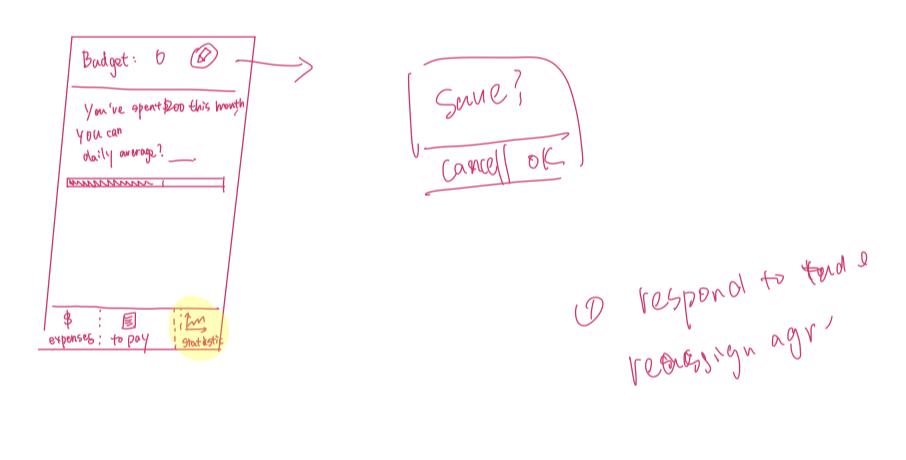 Budget: 0
You've spent $200 this month
you can
daily average? ___
$
expenses
to pay
statistic
Save?
Cancell OK
① respond to
reassign agr